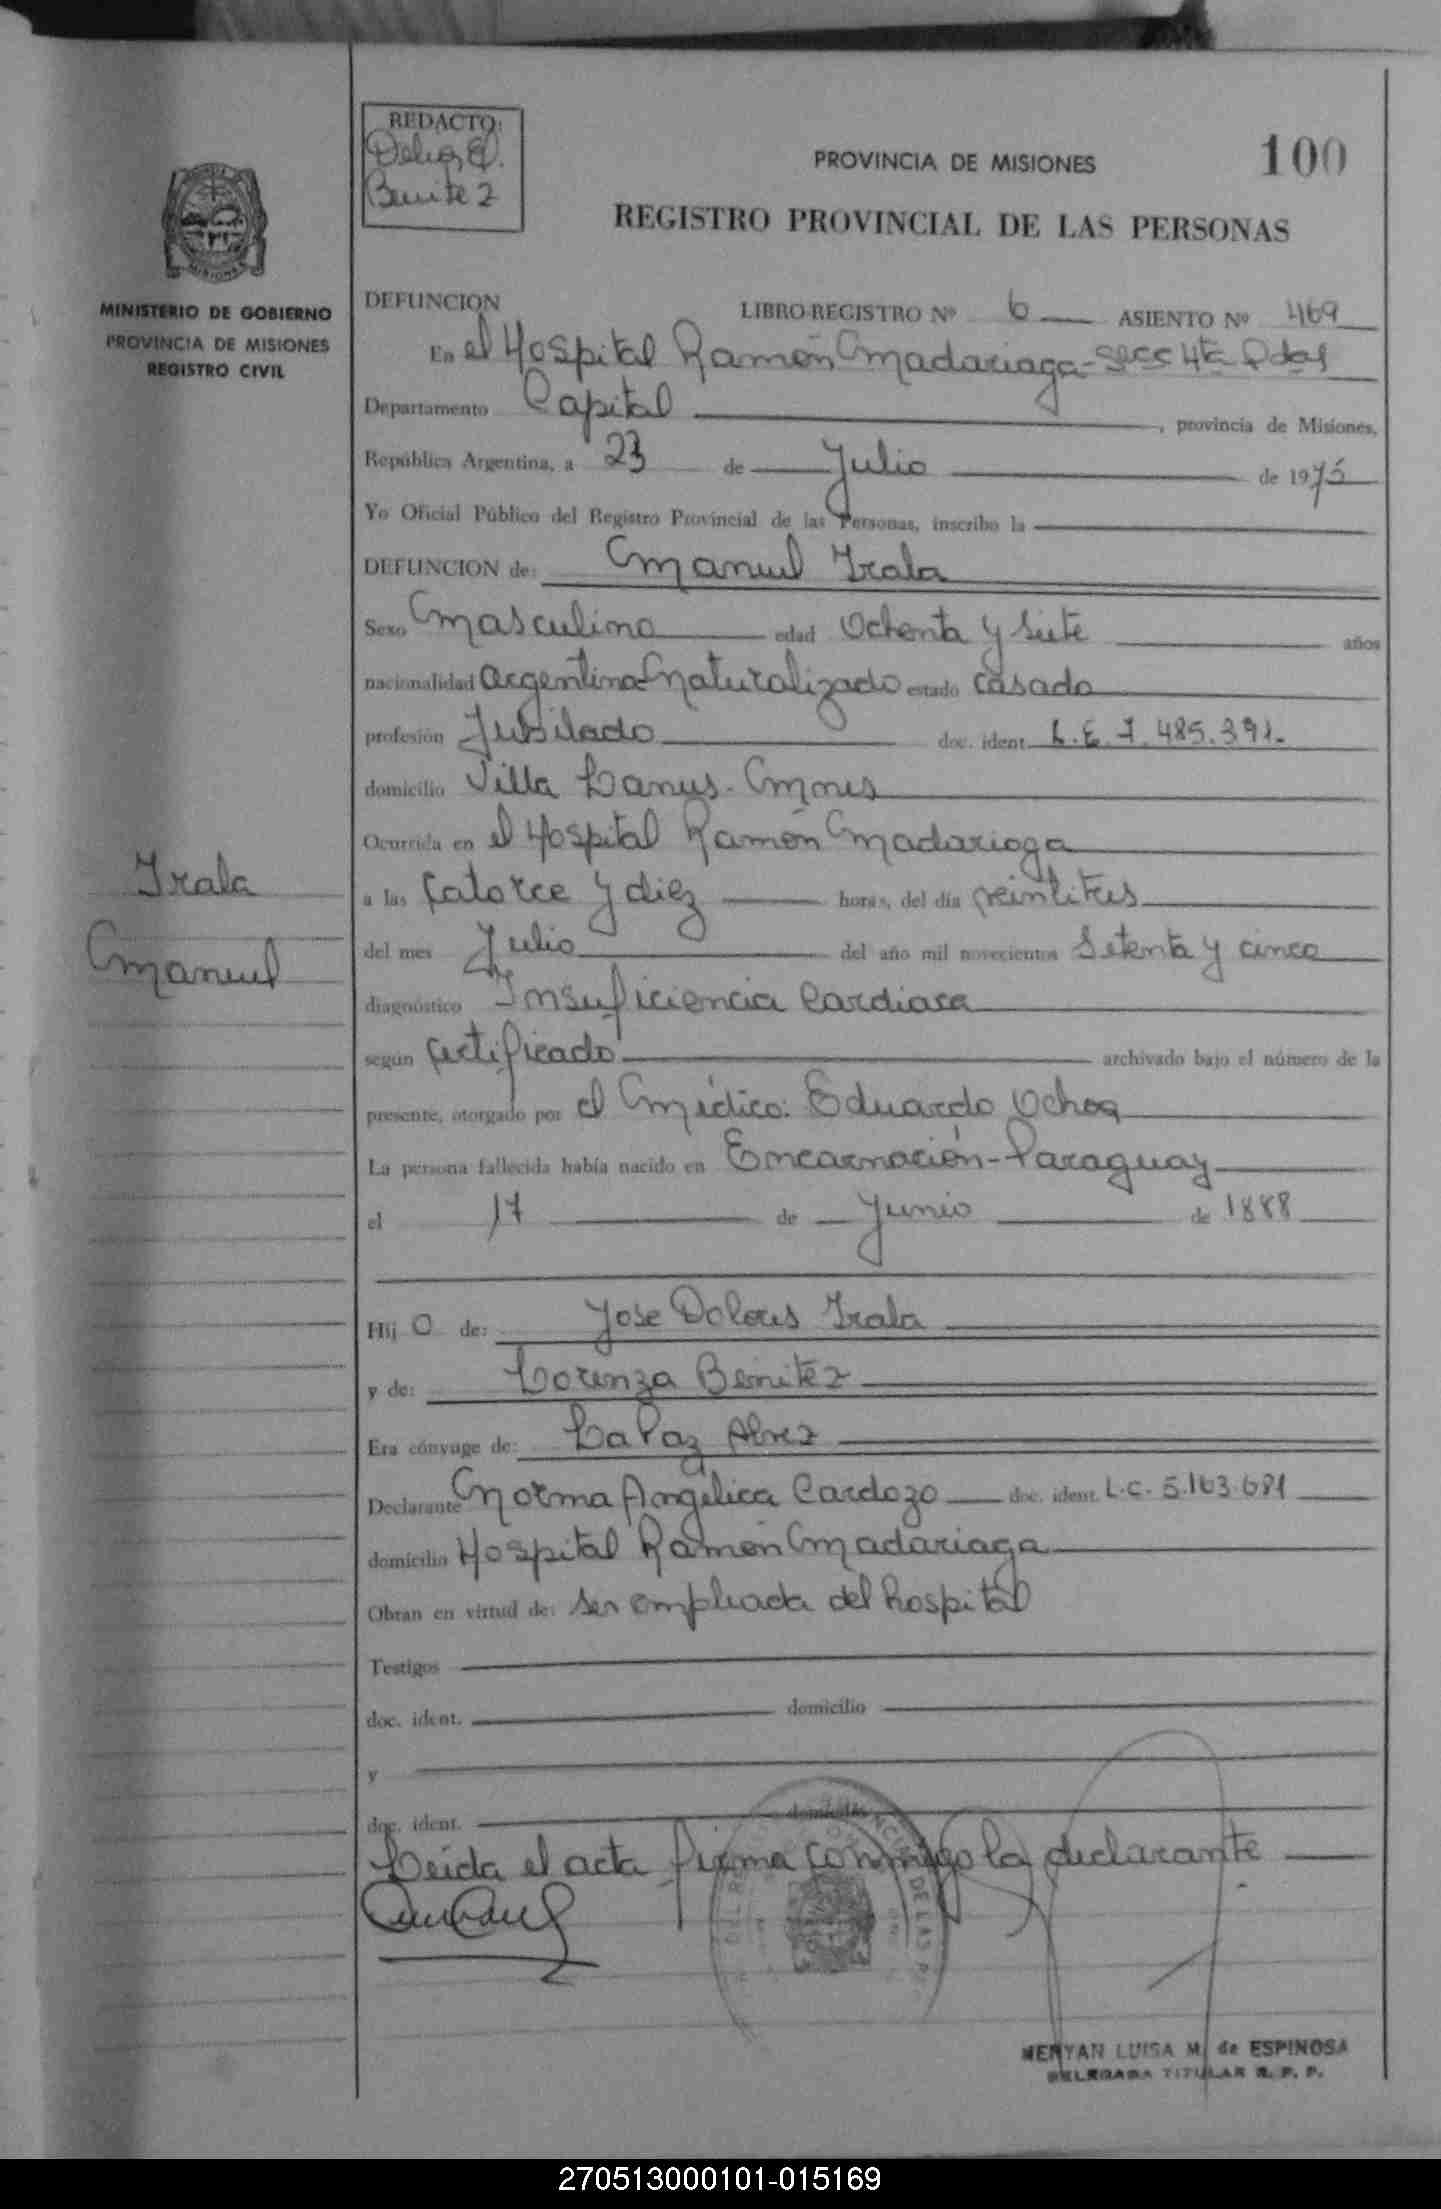 REDACTO:
Benitez
100
PROVINCIA DE MISIONES
REGISTRO PROVINCIAL DE LAS PERSONAS
MISIONES
MINISTERIO DE GOBIERNO
PROVINCIA DE MISIONES
REGISTRO CIVIL
DEFUNCION LIBRO-REGISTRO Nº 6 ASIENTO Nº 469
En el Hospital Ramón Madariaga - Secc 4ta Pdas
Departamento Capital, provincia de Misiones,
República Argentina, a 23 de Julio de 1975
Yo Oficial Público del Registro Provincial de las Personas, inscribo la
DEFUNCION de: Manuel Irala
Sexo Masculino edad Ochenta y siete años
nacionalidad Argentino Naturalizado estado Casado
profesión Jubilado doc. ident. L.E. 7.485.391.
domicilio Villa Lanus - Mnes
Ocurrida en el Hospital Ramón Madariaga
Irala
a las Catorce y diez horas, del día veintitres
Manuel
del mes Julio del año mil novecientos Setenta y cinco
diagnóstico Insuficiencia Cardiaca
según Certificado archivado bajo el número de la
presente, otorgado por el Médico: Eduardo Ochoa
La persona fallecida había nacido en Encarnación - Paraguay
el 17 de Junio de 1888
Hijo de: Jose Dolores Irala
y de: Lorenza Benitez
Era cónyuge de: La Paz Alvez
Declarante Norma Angélica Cardozo doc. ident. L.C. 5.163.681
domicilio Hospital Ramón Madariaga
Obran en virtud de: ser empleada del hospital
Testigos
doc. ident. domicilio
y
doc. ident. domicilio
Leida el acta firma conmigo la declarante
MERYAN LUISA M. de ESPINOSA
DELEGADA TITULAR R. P. P.
270513000101-015169